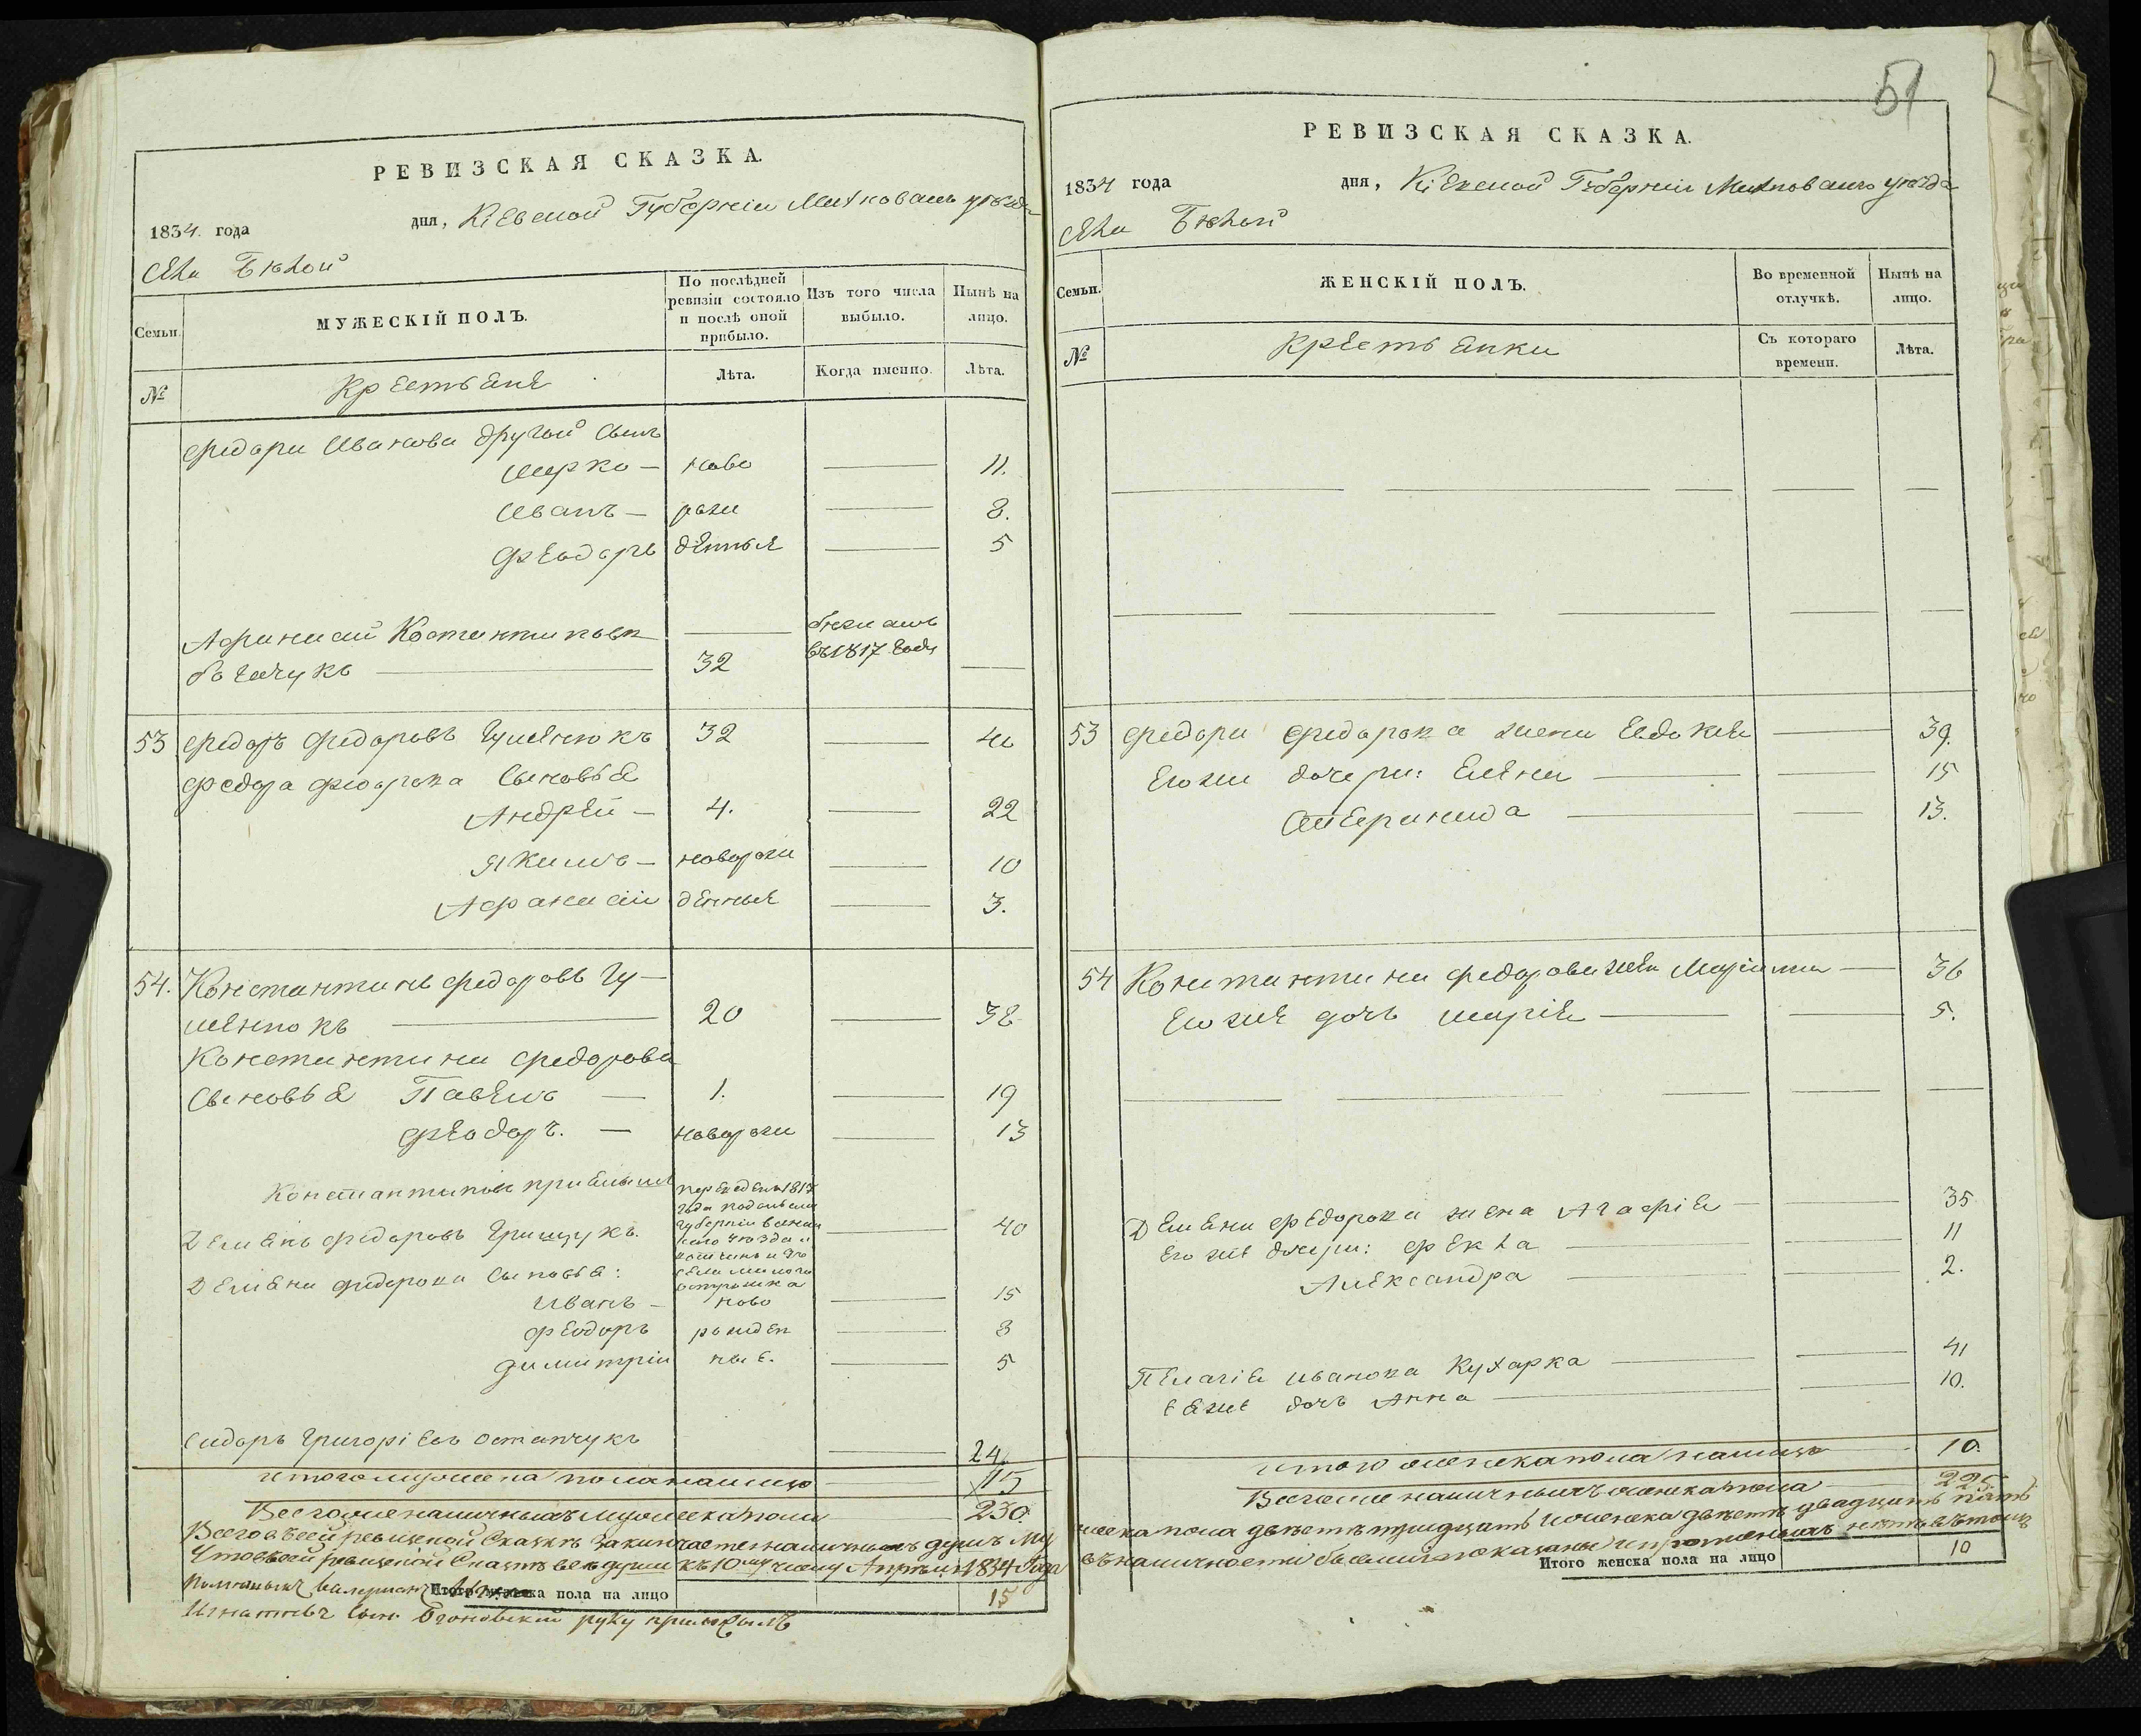 РЕВИЗСКАЯ СКАЗКА.
1834. года дня, Кіевской Губерніи Уѣзда
Села Бѣлой
Семьи. МУЖЕСКІЙ ПОЛЪ. По послѣдней ревизіи состояло и послѣ оной прибыло. Изъ того числа выбыло. Нынѣ на лицо.
№ Крестьяне Лѣта. Когда именно. Лѣта.
Федора Иванова другой сынъ
Марко — ново 11.
Иванъ — рож 8.
Феодоръ денные 5
Афанасій Костантиновъ бежалъ
32 въ 1817 году
53 Федоръ Федоровъ 32
Федора Федорова Сыновья
Андрей — 4. 22
Якимъ — новорож 10
Афанасій денные 3.
54. Константинъ Федоровъ
20 38
Константина Федорова
Сыновья Павелъ — 1. 19
Феодоръ. — новорож 13
Константиновъ
переведенъ 1817
года Подольской
губерніи
уѣзда
Деміянъ Федоровъ Грищукъ. 40
села
Деміяна Федорова Сыновья:
Иванъ — ново 15
Феодоръ рожден 8
Димитрій ные. 5
Сидоръ Григоріевъ Остапчукъ 24
Итого мужеска пола налицо 15
Всего же наличныхъ мужеска пола 230
Всего въ сей ревизской Сказкѣ заключается наличныхъ душъ му
Что въ сей ревизской Сказкѣ все души къ 10му числу Апрѣля 1834 Года
Помѣщикъ Валеріанъ
Итого мужеска пола на лицо 15
Игнатьевъ Сынъ руку приложилъ
51
РЕВИЗСКАЯ СКАЗКА.
1834 года дня, Кіевской Губерніи уѣзда
Села Бѣлой
Семьи. ЖЕНСКІЙ ПОЛЪ. Во временной отлучкѣ. Нынѣ на лицо.
№ Крестьянки Съ котораго времени. Лѣта.
53 Федора Федорова жена Евдокія 39.
Его же дочери: Елена 15
13.
54 Константина Федорова жена Маріяна 36
Его же дочь Марія 5.
Деміяна Федорова жена Агафія 35
Его же дочери: Фекла 11
Александра 2.
Пелагія Иванова Кухарка 41
Ея же дочь Анна 10.
Итого женска пола налицо 10.
Всего же наличныхъ женска пола 225.
жеска пола двѣстѣ тридцать и женска двѣстѣ двадцать пять
въ наличности бывшіе показаны и пропущенныхъ нѣтъ въ томъ
Итого женска пола на лицо 10